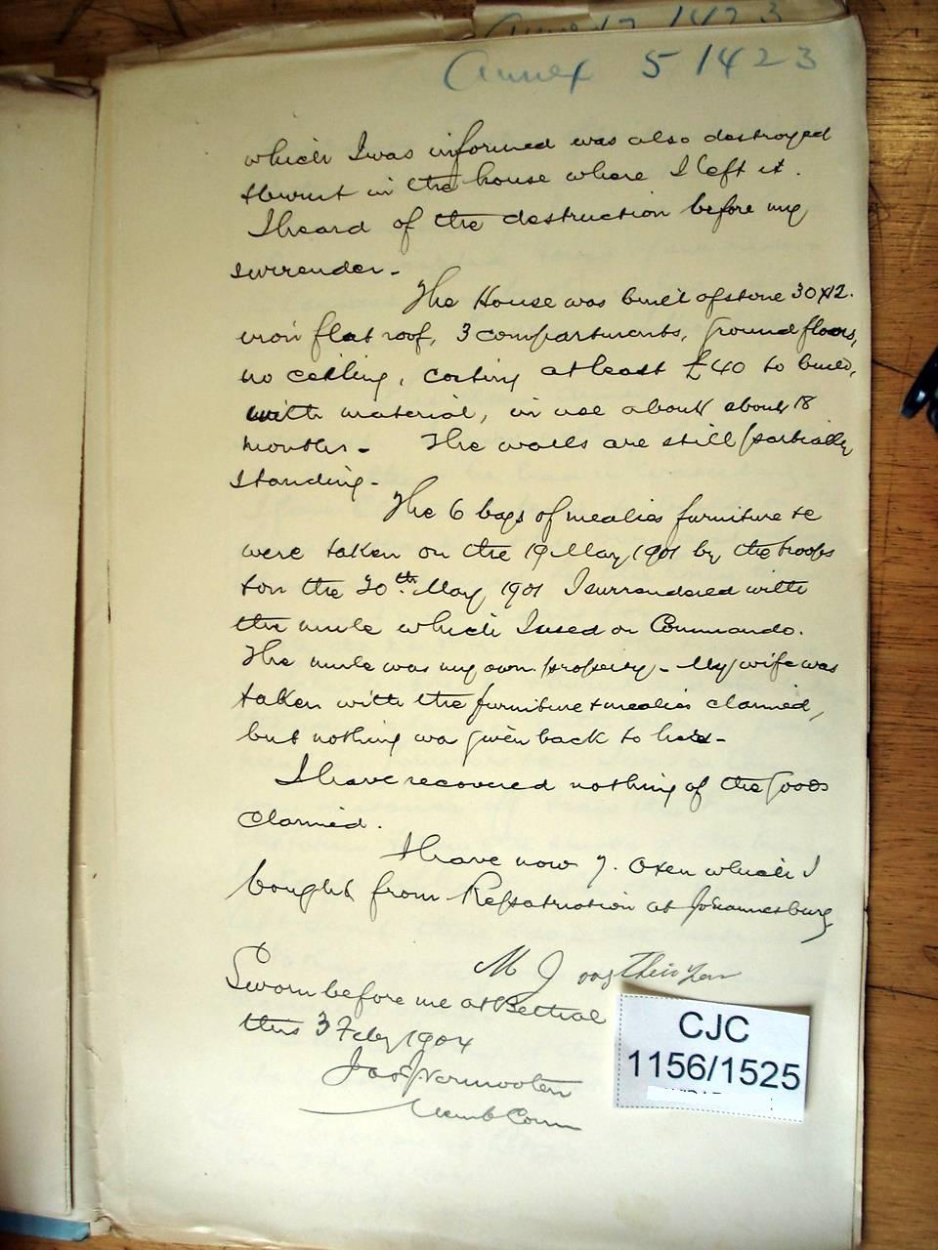 Annex 7 1423
Annex 5 1423
which I was informed was also destroyed
& burnt in the house where I left it.
I heard of the destruction before my
surrender -
The House was built of stone 30 x 12.
iron flat roof, 3 compartments, ground floors,
no ceiling, costing at least £40 to build,
with material, in use about about 18
months - The walls are still partially
standing -
The 6 bags of mealies furniture &c
were taken on the 19 May 1901 by the troops
& on the 20th May 1901 I surrendered with
the mule which I used on Commando.
The mule was my own property - My wife was
taken with the furniture & mealies claimed,
but nothing was given back to her -
I have recovered nothing of the goods
claimed.
I have now 7. oxen which I
bought from Repatriation at Johannesburg
M J
Sworn before me at Bethal
this 3 Feby 1904
Vermooten
Memb Comm
CJC
1156/1525